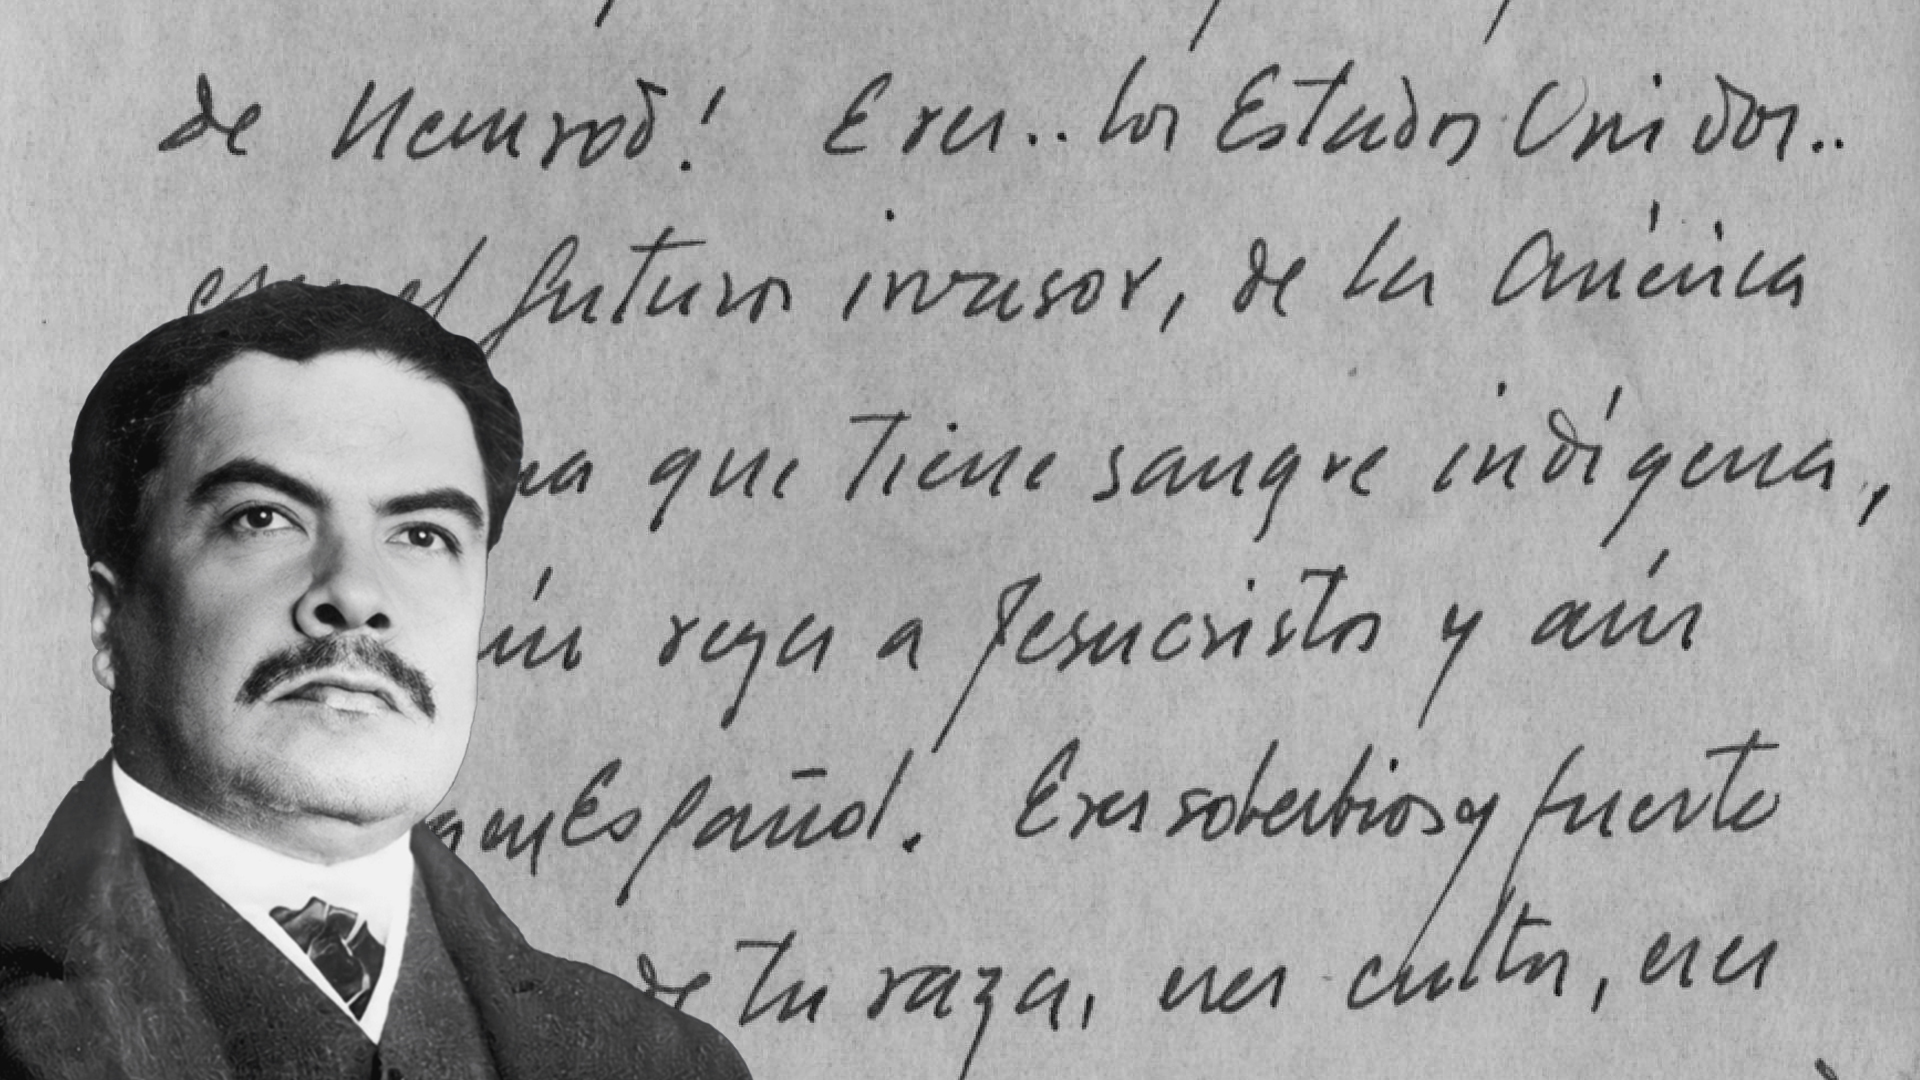 de Nemrod! Eres.. los Estados Unidos..
eres el futuro invasor, de la América
ua que tiene sangre indígena,
ún reza a Jesucristo y aún
a en Español. Eres soberbio y fuerte
de tu raza, eres culto, eres